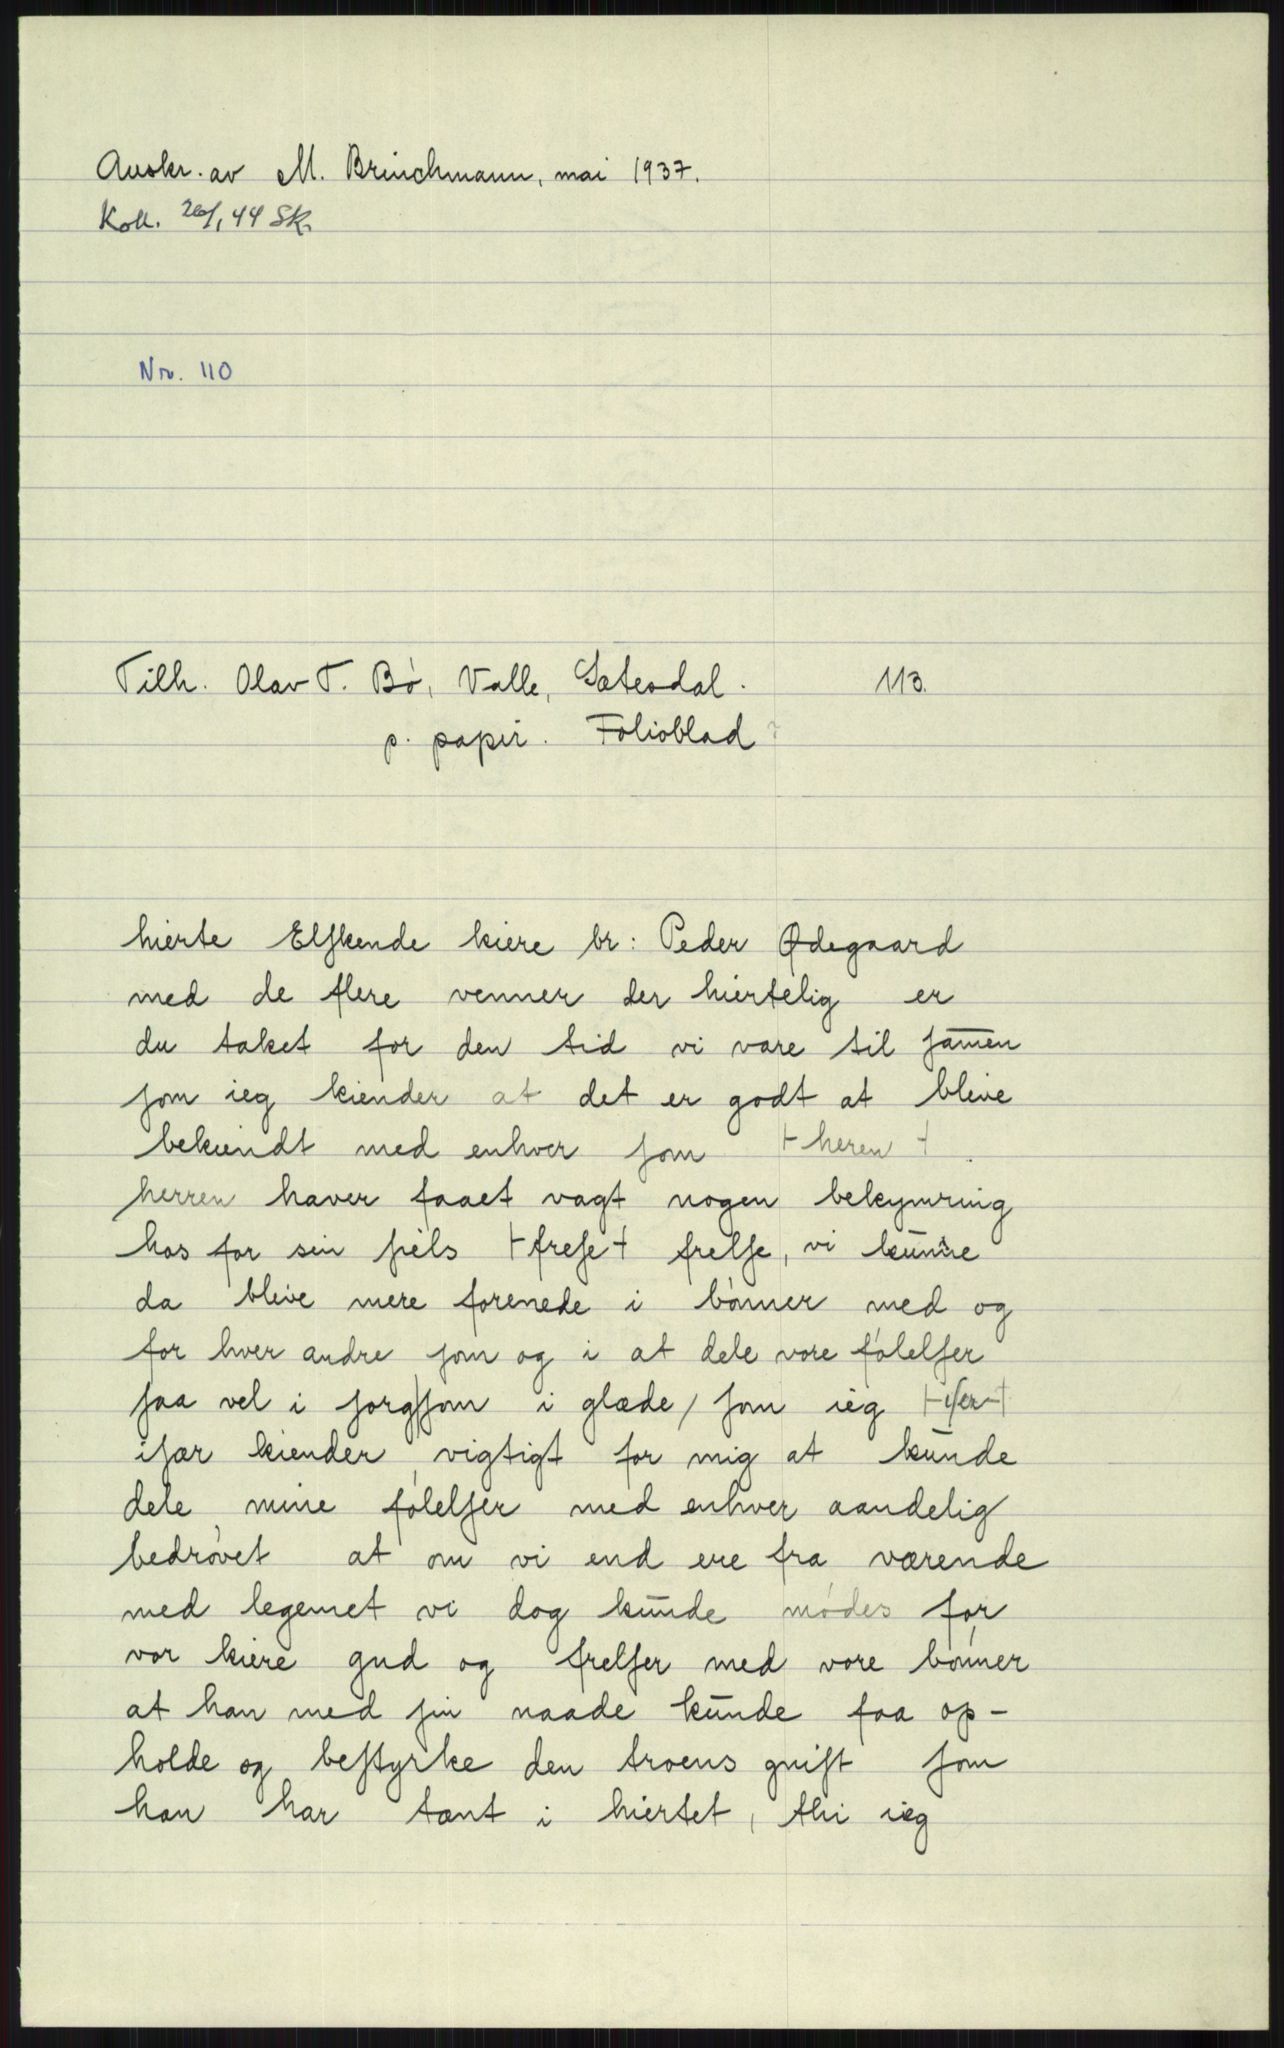 Avskr. av M. Brinchmann, mai 1937.
Koll. 26/1, 44 Sk.
Nr. 110
Tilh. Olav T. Bø, Valle, Setesdal. 113.
p. papir. Folioblad
hierte Elſkende kiere br: Peder Ødegaard
med de flere venner der hiertelig er
du taket for den tid vi vare til ſam̅en
ſom ieg kiender at det er godt at bleve
bekiendt med enhver ſom ⊢heren⊣
herren haver faaet vagt nogen bekymring
hos for sin ſiels ⊢freſe⊣ frelſe, vi kunne
da bleve mere forenede i bønner med og
for hver andre ſom og i at dele vore følelſer
ſaa vel i ſorg/ſom i glæde/ ſom ieg ⊢iſer⊣
iſær kiender vigtigt for mig at kunde
dele mine følelſer med enhver aandelig
bedrøvet at om vi end ere fra værende
med legemet vi dog kunde mødes for
vor kiere gud og frelſer med vore bønner
at han med ſin naade kunde faa op-
holde og beſtyrke den troens gniſt ſom
han har tænt i hiertet, thi ieg